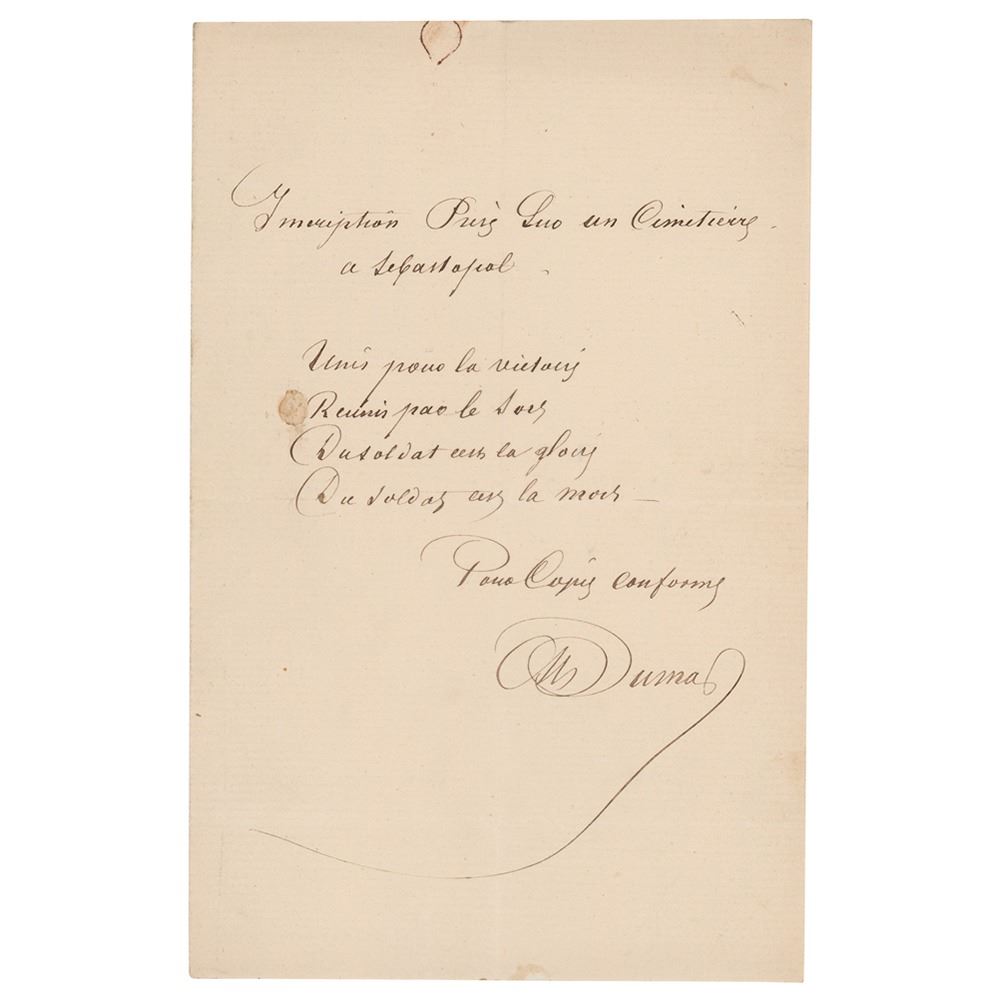 Inscription Prise Sur un Cimetierre
a Sebastopol
Unis pour la victoire
Reunis par le Sort
Du soldat cest la gloire
Du soldat cest la mort
Pour Copie conforme
Alex Dumas